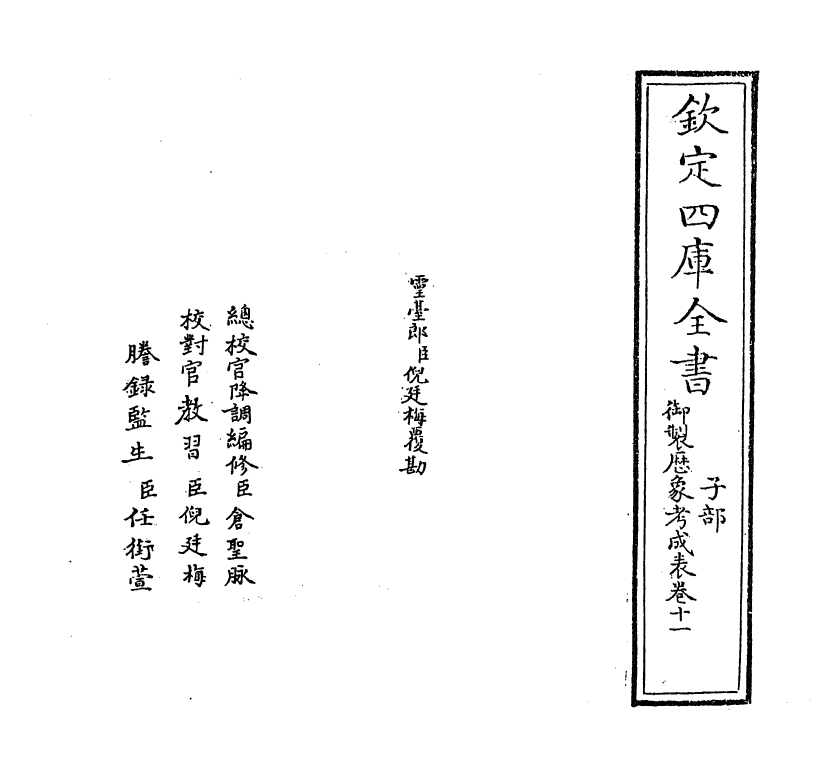 欽定四庫全書
子部
御製厯象考成表卷十一
靈臺郎臣倪廷梅覆勘
總校官降調編修臣倉聖脈
校對官教習臣倪廷梅
謄錄監生臣任銜萱